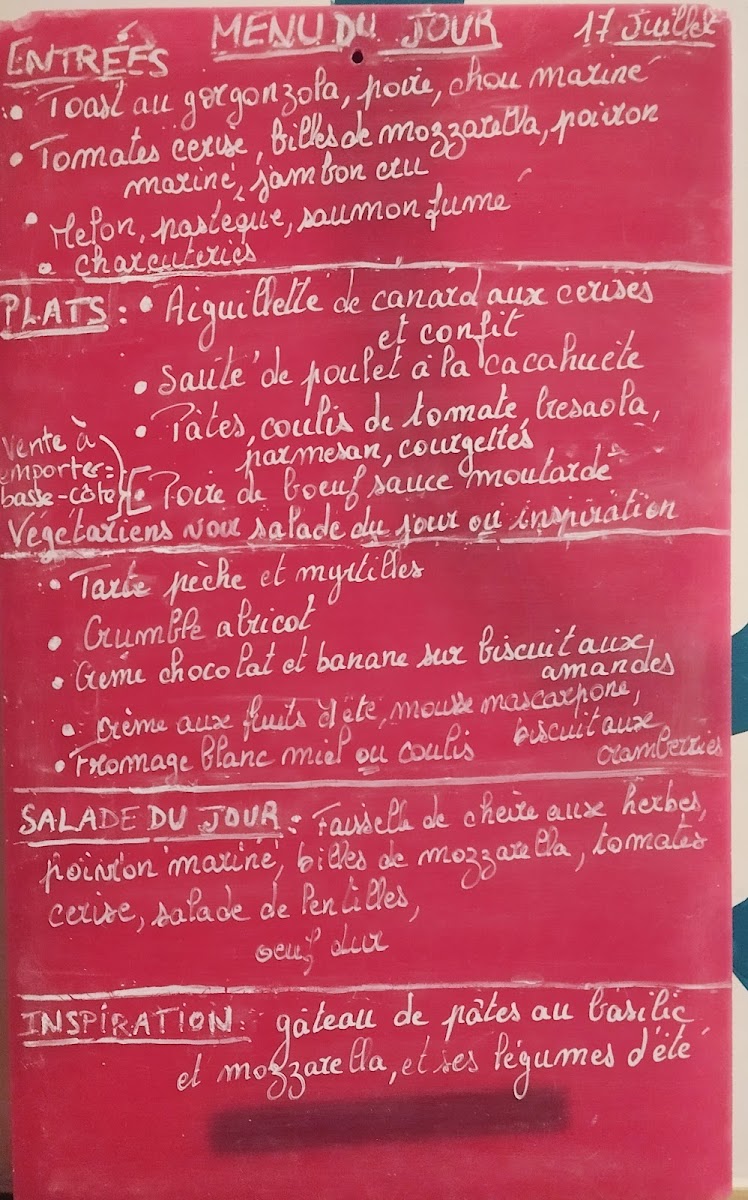 MENU DU JOUR 17 Juillet
ENTRÉES
• Toast au gorgonzola, poire, chou mariné
• Tomates cerise, billes de mozzarella, poivron
mariné, jambon cru
• Melon, pastèque, saumon fumé
• charcuteries
PLATS : • Aiguillette de canard aux cerises
et confit
• Sauté de poulet à la cacahuète
• Pâtes, coulis de tomate, bresaola,
parmesan, courgettes
Vente à
emporter =
basse-côte
• Poire de boeuf sauce moutarde
Végétariens voir salade du jour ou inspiration
• Tarte pèche et myrtilles
• Crumble abricot
• Crème chocolat et banane sur biscuit aux
amandes
• Crème aux fruits d'été, mousse mascarpone,
biscuit aux
cramberries
• Fromage blanc miel ou coulis
SALADE DU JOUR : Faisselle de chèvre aux herbes,
poivron mariné, billes de mozzarella, tomates
cerise, salade de lentilles,
oeuf dur
INSPIRATION : gâteau de pâtes au basilic
et mozzarella, et ses légumes d'été